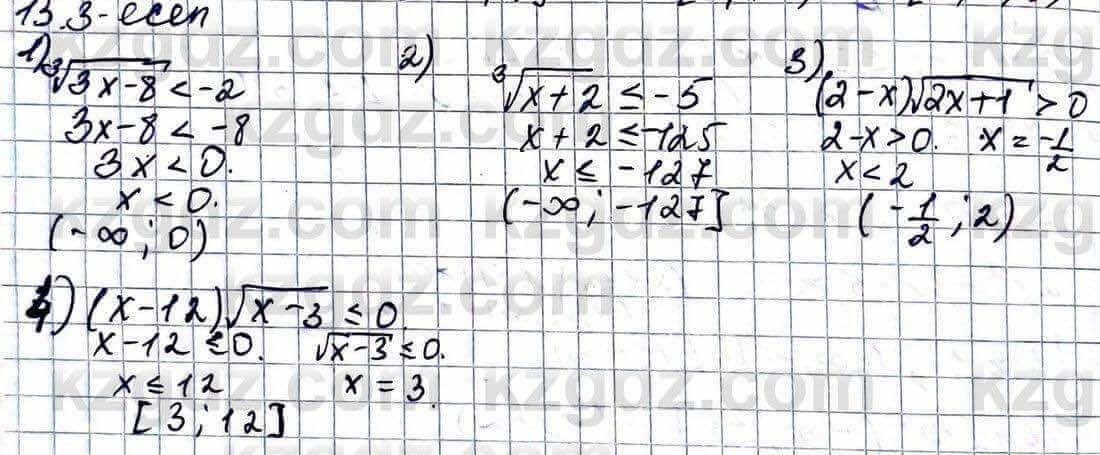 13.3-есеп
1) ∛(3x-8) < -2
3x-8 < -8
3x < 0.
x < 0.
(-∞; 0)
2) ∛(x+2) ≤ -5
x+2 ≤ -125
x ≤ -127
(-∞; -127]
3) (2-x)√(2x+1) > 0
2-x>0. x = -1/2
x < 2
(-1/2; 2)
4) (x-12)√(x-3) ≤ 0.
x-12 ≤ 0. √(x-3) ≤ 0.
x ≤ 12 x = 3.
[3; 12]
kzgdz.com